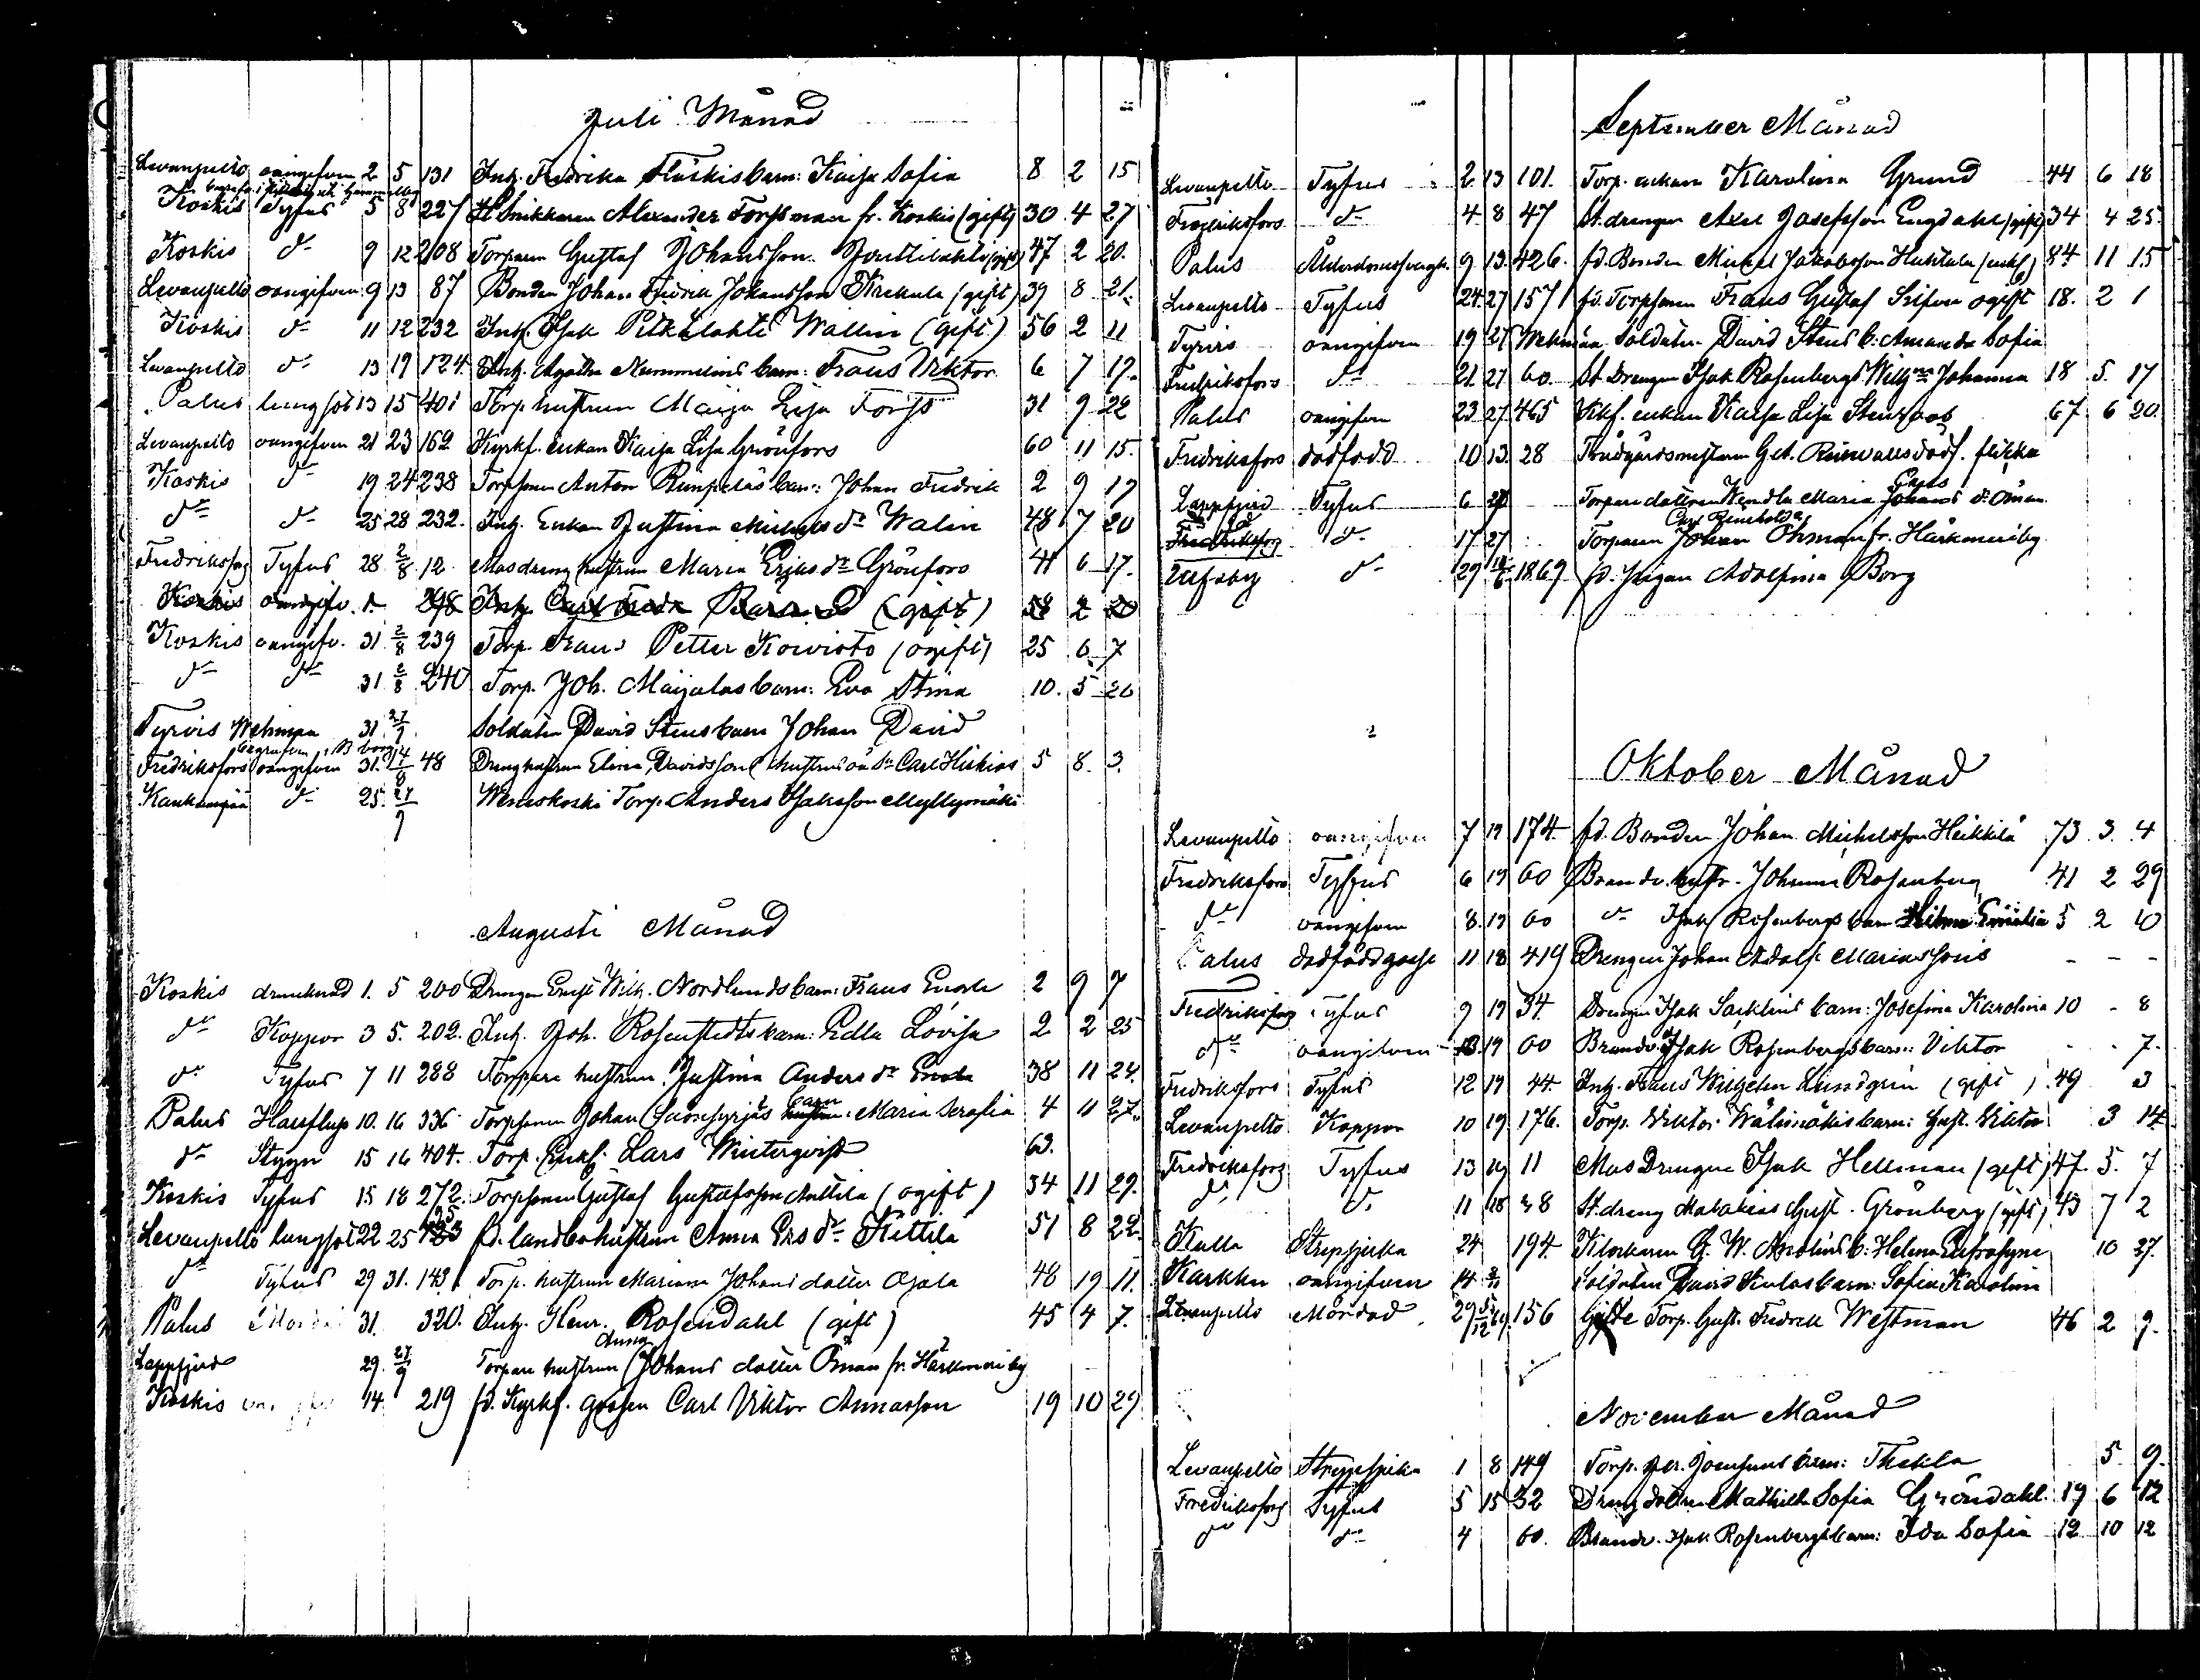 Juli Månad
Levanpelto oangifven 2 5 131 Inh. Fredrika Flinkis barn: Kaisa Sofia 8 2 15
Koskis Tyfus 5 8 227 Snikkaren Alexander Forssman fr. Koskis (gift) 30 4 27
Koskis d:o 9 12 208 Torparen Gustaf Johansson (gift) 47 2 20.
Levanpelto oangifven 9 13 87 Bonden Johan Fredrik Johansson Krekula (gift) 39 8 21.
Koskis d:o 11 12 232 Inh. Isak Pitkälahti Wallin (gift) 56 2 11
Levanpelto d:o 13 19 124. Inh. Agatha Nummelins barn: Frans Viktor 6 7 19.
Palus lungsot 13 15 401 Torp. hustrun Maija Lisa Forss 31 9 22
Levanpelto oangifven 21 23 162 Kyrkf. Enkan Kaisa Lisa Grönfors 60 11 15.
Koskis d:o 19 24 238 Torpsonen Anton barn: Johan Fredrik 2 9 19
d:o d:o 25 28 232. Inh. Enkan Justina Mickels d:r Walin 48 7 20
Fredriksforss Tyfus 28 2/8 12. Masdreng hustrun Maria Eriks d:r Grönfors 41 6 17.
Koskis oangifv. 298 Inh. (gift) 58 2 20
Koskis oangifv. 31 2/8 239 Torp. Frans Petter Koivisto (ogift) 25 6 7
d:o d:o 31 2/8 240 Torp. Joh. Maijalas barn: Eva Stina 10. 5 26
Tyrvis Wehmaa 31 27/9 Soldaten David Stens barn Johan David
begrafven i B borg
Fredriksfors oangifven 31. 14/8 48 Drenghustrun Elvira Davidsson Carl Hiskias 5 8. 3.
Kankaanpää d:o 25. 27/9 Weneskoski Torp. Anders Isaksson Myllymäki
Augusti Månad
Koskis drunknad 1. 5 200 Drengen Ernst Wilh. Nordlunds barn: Frans Enok 2 9 7
d:o Koppor 3 5. 202. Inh. Joh. Rosenstedts barn: Edla Lovisa 2 2 25
d:o Tyfus 7 11 288 Torpare hustrun Justina Anders d:r 38 11 24.
Palus 10. 16 336 Torpsonen Johan barn Maria Serafia 4 11 27.
d:o Styng 15 16 404. Torp. Enkl. Lars Winterqvist 63.
Koskis Tyfus 15 18 272. Torpsonen Gustaf Gustafsson Anttila (ogift) 34 11 29.
Levanpelto lungsot 22 25 fd. landbohustrun Anna Ers d:r Kittilä 51 8 22.
d:o Tyfus 29 31. 143 Torp. hustrun Mariana Johans dotter Ojala 48 19 11.
Palus 31. 320. Inh. Henr. Rosendahl (gift) 45 4 7.
Lappfjerd 29. 27/9 Torpare hustrun Anna Johans dotter Öman fr. Härkmeri by
Koskis 14. 219 fd. Kyrkf. gossen Carl Viktor Annasson 19 10 29
September Månad
Levanpelto Tyfus 2 13 101. Torp. enkan Karolina Grund 44 6 18
Fredriksfors d:o 4 8 47 St. drengen Axel Josefsson Engdahl (gift) 34 4 25.
Palus Ålderdomssvagh. 9 13. 426. fd. Bonden Mickel Jakobsson Huhtala (enkl) 84 11 15
Levanpelto Tyfus 24. 27 157 fd. Torpsonen Frans Gustaf ogift 18. 2 1
Tyrvis oangifven 19 27 Wehmaa Soldaten David Stens b. Amanda Sofia
Fredriksfors d:o 21 27 60. St. Drengen Isak Rosenbergs Johanna 18 5. 17
Palus oangifven 23 27 465 Kkf. enkan Kaisa Lisa 67. 6 20
Fredriksfors dödfödd 10 13. 28 Trädgårdsmestaren Gab. dödf. flicka
Lappfjerd Tyfus 6 27 Torpare dottren Wendla Maria Carls Johans d:r Öman
Carl Reinhold
Fredriksfors d:o 17 27 Torparen Johan Öhman fr. Härkmeriby
Ulfsby d:o 29 1869 fd. Pigan Adolfina Borg
Oktober Månad
Levanpelto oangifven 7 19 174. fd. Bonden Johan Michelsson Heikkilä 73. 3. 4
Fredriksfors Tyfus 6 19 60 Brandv. hustr. Johanna Rosenberg 41 2 29
d:o oangifven 8. 19 60 d:o Isak Rosenbergs barn Hilma Emilia 5 2 10
Palus dödfödd gosse 11 18 419 Drengen Johan Adolf Mariassons - - -
Fredriksforss Tyfus 9 19 34. Drengen Isak Säcklins barn: Josefina Karolina 10 - 8
d:o oangifven 13. 19 60 Brandv. Isak Rosenbergs barn: Viktor - - 7.
Fredriksfors Tyfus 12 19 44. Inh. Frans Wilhelm Lundgren (gift) 49 3
Levanpelto Koppor 10 19 176. Torp. Viktor Wälimäkis barn: Gust. Viktor 3 14
Fredriksforss Tyfus 13 19 11 Mas Drengen Isak Hellman (gift) 47. 5. 7
d:o d:o 11 18 48 St. dreng Malakias Gust. Grönberg (gift) 43 7 2
Kulla Strypsjuka 24 194. Klockaren G. W. b: Helena Eufrosyne 10 27.
Karkku oangifven 14 Soldaten David barn: Sofia Karolina
Levanpelto Mördad 29 156 Torp. Gust. Fredrik Westman 46 2 9.
November Månad
Levanpelto Strypsjuka 1 8 149 Torp. barn: Thekla 5. 9.
Fredriksforss Tyfus 5 15 32 Dreng dottren Mathilda Sofia Gröndahl. 19 6 12
d:o d:o 4 60. Brandv. Isak Rosenbergs barn: Ida Sofia 12 10 12